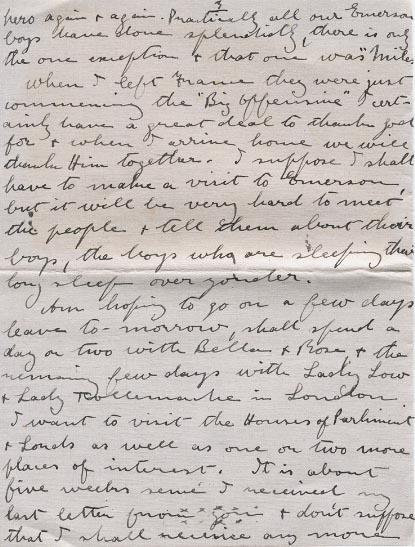 3
hero again + again. Practically all our Emerson
boys have done splendidly, there is only
the one exception + that one was "Mike
When I left France they were just
commencing the "Big Offensive" I cert-
ainly have a great deal to thank God
for + when I arrive home we will
thank Him together. I suppose I shall
have to make a visit to Emerson,
but it will be very hard to meet
the people + tell them about their
boys, the boys who are sleeping their
long sleep over yonder.
Am hoping to go on a few days
leave to-morrow, shall spend a
day or two with Bella + Rose, + the
remaining few days with Lady Low
+ Lady Tollemache in London
I want to visit the Houses of Parliment
+ Lords as well as one or two more
places of interest. It is about
five weeks since I received my
last letter from you + don't suppose
that I shall receive any more